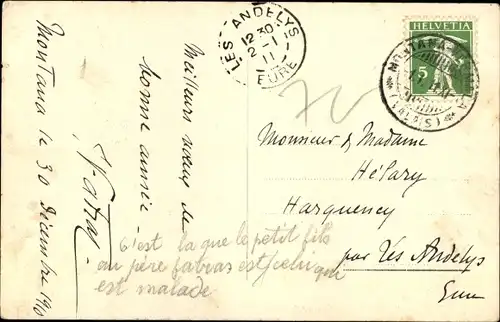 LES ANDELYS
12 30
2 - 1
11
EURE
HELVETIA
5
MONTANA
(VALAIS)
Montana le 30 Décembre 1910
Meilleurs vœux de
bonne année
Monsieur & Madame
Hélary
Harquency
par Les Andelys
Eure
C'est la que le petit fils
au père fabras est
est malade